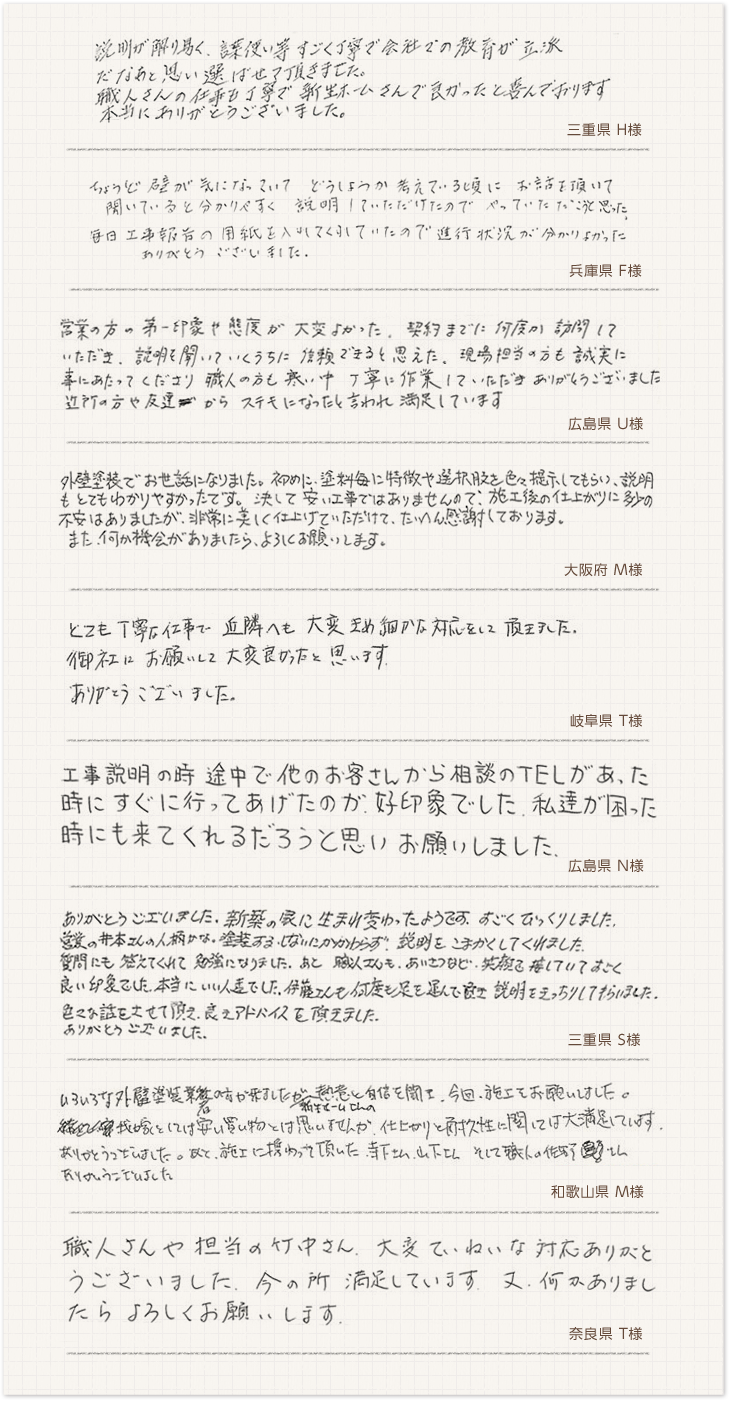 説明が解り易く、言葉使い等すごく丁寧で会社での教育が立派
だなあと思い選ばせて頂きました。
職人さんの仕事も丁寧で新生ホームさんで良かったと喜んでおります
本当にありがとうございました。
三重県 H様
ちょうど壁が気になっていて どうしようか考えている頃に お話を頂いて
聞いていると分かりやすく 説明していただけたので やっていただこうと思った。
毎日工事報告の用紙を入れてくれていたので進行状況が分かりよかった
ありがとうございました。
兵庫県 F様
営業の方の第一印象や態度が大変よかった。契約までに何度か訪問して
いただき、説明を聞いていくうちに信頼できると思えた。現場担当の方も誠実に
事にあたってくださり 職人の方も寒い中 丁寧に作業していただきありがとうございました
近所の方や友達から ステキになったと言われ満足しています
広島県 U様
外壁塗装でお世話になりました。初めに、塗料毎に特徴や選択肢を色々提示してもらい、説明
もとてもわかりやすかったです。決して安い工事ではありませんので、施工後の仕上がりに多少の
不安はありましたが、非常に美しく仕上げていただけて、たいへん感謝しております。
また、何か機会がありましたら、よろしくお願いします。
大阪府 M様
とても丁寧な仕事で 近隣へも 大変きめ細かな対応をして頂きました。
御社に お願いして 大変良かったと 思います。
ありがとうございました。
岐阜県 T様
工事説明の時 途中で他のお客さんから相談のTELがあった
時に すぐに行ってあげたのが、好印象でした。私達が困った
時にも来てくれるだろうと思い お願いしました。
広島県 N様
ありがとうございました。新築の家に生まれ変わったようです。すごくびっくりしました。
営業の井本さんの人柄かな。塗装する、しないにかかわらず、説明を こまかくしてくれました。
質問にも 答えてくれて 勉強になりました。あと 職人さんも、あいさつなど、笑顔で接していてすごく
良い印象でした。本当に いい人達でした。伊藤さんも何度も足を運んで頂き 説明をきっちりしてもらいました。
色々な話をさせて頂き、良きアドバイスを頂きました。
ありがとうございました。
三重県 S様
いろいろな外壁塗装業者の方が来ましたが、熱意と自信を聞き、今回、施工をお願いしました。
新生ホームさんの
我家としては安い買い物とは思いませんが、仕上がりと耐久性に関しては大満足しています。
ありがとうございました。あと、施工に携わって頂いた、寺下さん、山下さん そして職人の佐野さん
ありがとうございました
和歌山県 M様
職人さんや担当の竹中さん、大変ていねいな対応ありがと
うございました。今の所 満足しています。又、何かありまし
たら よろしくお願いします。
奈良県 T様